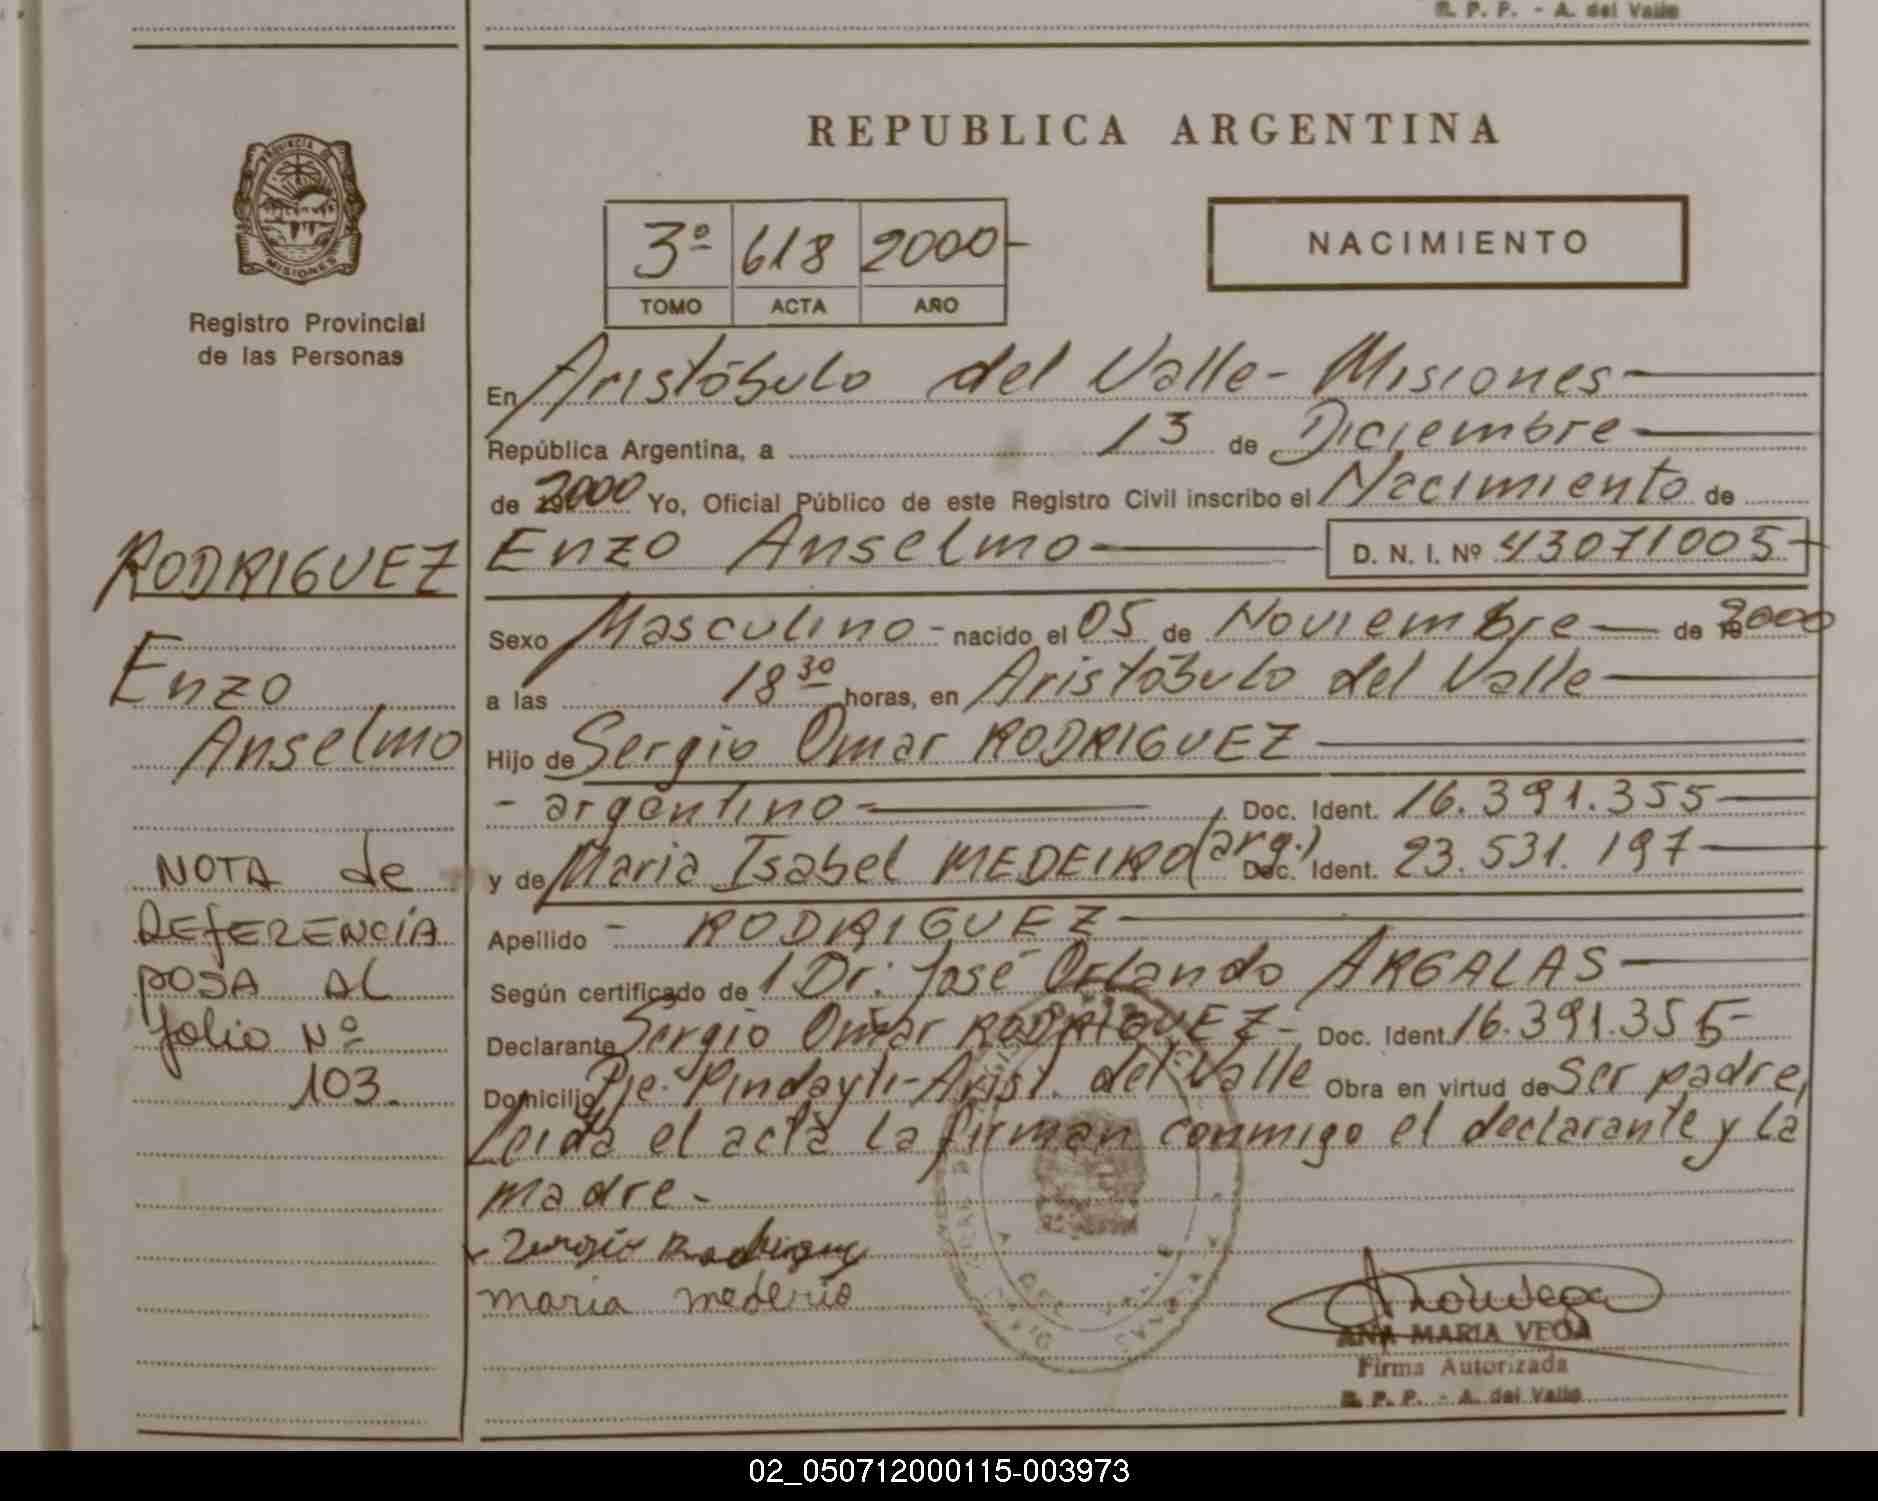 R. P. P. - A. del Valle
REPUBLICA ARGENTINA
PROVINCIA DE
MISIONES
Registro Provincial
de las Personas
3º 618 2000-
TOMO ACTA AÑO
NACIMIENTO
En Aristóbulo del Valle- Misiones
República Argentina, a 13 de Diciembre
de 2000 Yo, Oficial Público de este Registro Civil inscribo el Nacimiento de
RODRIGUEZ
Enzo
Anselmo
Enzo Anselmo D. N. I. Nº 43071005
Sexo Masculino - nacido el 05 de Noviembre de 2000
a las 18 30 horas, en Aristóbulo del Valle
Hijo de Sergio Omar RODRIGUEZ
- argentino- Doc. Ident. 16.391.355
y de Maria Isabel MEDEIRO (arg.) Doc. Ident. 23.531.197
Apellido - RODRIGUEZ
Según certificado de Dr. José Orlando ARGALAS
Declarante Sergio Omar RODRIGUEZ- Doc. Ident. 16.391.355-
Domicilio Pje. Pindayti-Arist. del Valle Obra en virtud de Ser padre,
Leida el acta la firman conmigo el declarante y la
madre.-
NOTA de
REfERENCIA
POSA AL
folio Nº
103.
Sergio Rodriguez
maria mederio
ANA MARIA VEGA
Firma Autorizada
R. P. P. - A. del Valle
02_050712000115-003973